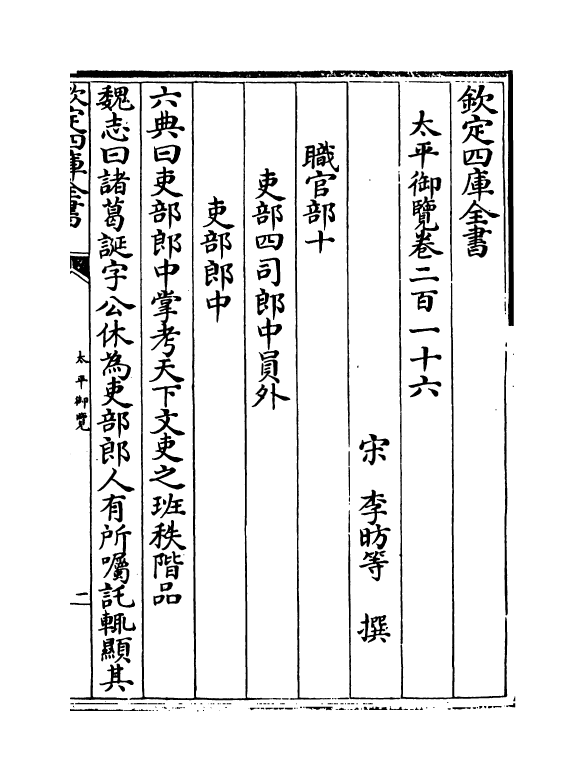 欽定四庫全書
太平御覽卷二百一十六
宋 李昉等 撰
職官部十
吏部四司郎中員外
吏部郎中
六典曰吏部郎中掌考天下文吏之班秩階品
魏志曰諸葛誕字公休為吏部郎人有所囑託輒顯其
欽定四庫全書
太平御覽
二